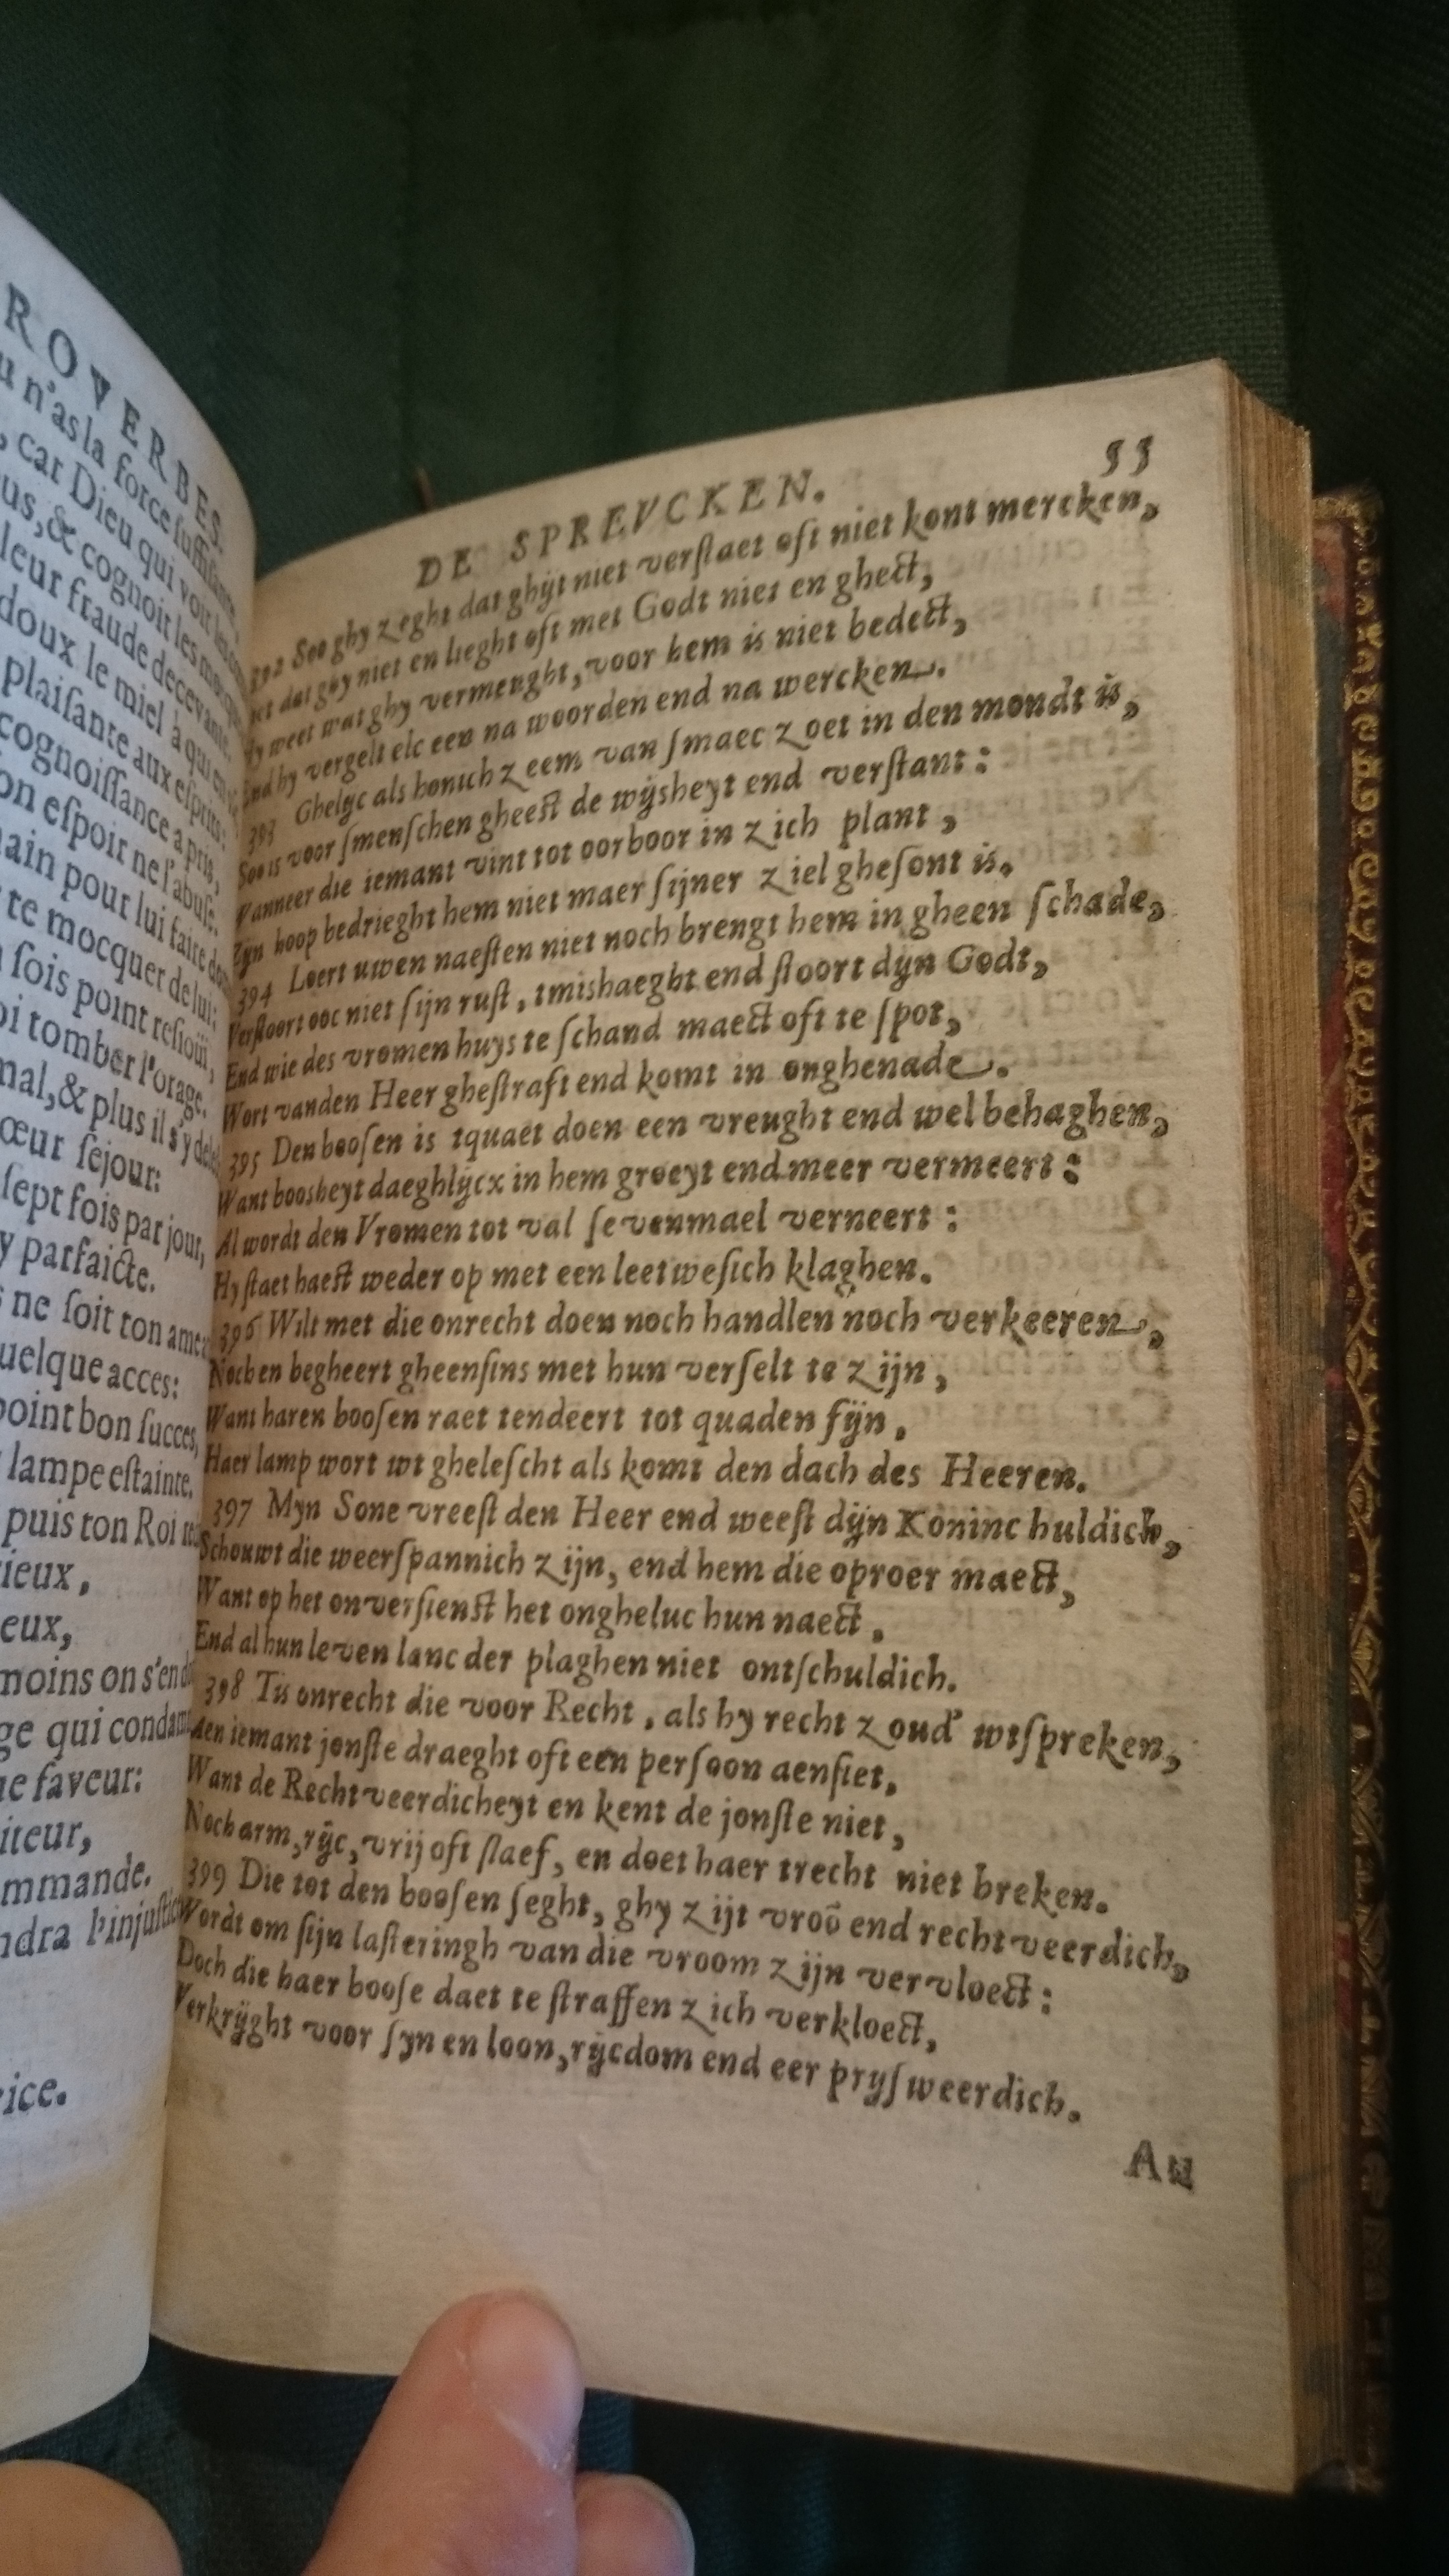 ROVERBES.
u n'as la force suffisante,
, car Dieu qui voit les
us, & cognoit les
leur fraude decevante.
doux le miel à qui en
plaisante aux esprits:
cognoissance a pris,
on espoir ne l'abuse.
ain pour lui faire
te mocquer de lui:
sois point resjouï,
oi tomber l'orage.
mal, & plus il s'y
œur sejour:
sept fois par jour,
y parfaicte.
ne soit ton
uelque acces:
point bon succes,
lampe estainte.
puis ton Roi
ieux,
eux,
moins on s'en
ge qui
ne faveur:
iteur,
mmande.
ndra l'injustice
ice.
DE SPREVCKEN. 55
392 Soo ghy zeght dat ghijt niet verstaet oft niet kont mercken,
dat ghy niet en lieght oft met Godt niet en ghect,
Hy weet wat ghy vermenght, voor hem is niet bedect,
End hy vergelt elc een na woorden end na wercken.
393 Ghelyc als honich zeem van smaec zoet in den mondt is,
Soo is voor smenschen gheest de wijsheyt end verstant:
Wanneer die iemant vint tot oorboor in zich plant,
Zyn hoop bedrieght hem niet maer sijner ziel ghesont is.
394 Loert uwen naesten niet noch brengt hem in gheen schade,
Verstoort ooc niet sijn rust, tmishaeght end stoort dyn Godt,
End wie des vromen huys te schand maect oft te spot,
Wort vanden Heer ghestraft end komt in onghenade.
395 Den boosen is tquaet doen een vreught end wel behaghen,
Want boosheyt daeghlijcx in hem groeyt end meer vermeert:
Al wordt den Vromen tot val sevenmael verneert:
Hy staet haest weder op met een leetwesich klaghen.
396 Wilt met die onrecht doen noch handlen noch verkeeren,
Noch en begheert gheensins met hun verselt te zijn,
Want haren boosen raet tendeert tot quaden fijn,
Haer lamp wort wt ghelescht als komt den dach des Heeren.
397 Myn Sone vreest den Heer end weest dijn Köninc huldich,
Schouwt die weerspannich zijn, end hem die oproer maect,
Want op het onversienst het ongheluc hun naect,
End al hun leven lanc der plaghen niet ontschuldich.
398 Tis onrecht die voor Recht, als hy recht zoud' wtspreken,
Aen iemant jonste draeght oft een persoon aensiet,
Want de Rechtveerdicheyt en kent de jonste niet,
Noch arm, rijc, vrij oft slaef, en doet haer trecht niet breken.
399 Die tot den boosen seght, ghy zijt vroõ end rechtveerdich,
Wordt om sijn lasteringh van die vroom zijn vervloect:
Doch die haer boose daet te straffen zich verkloect,
Verkrijght voor syn en loon, rijcdom end eer prysweerdich.
Au